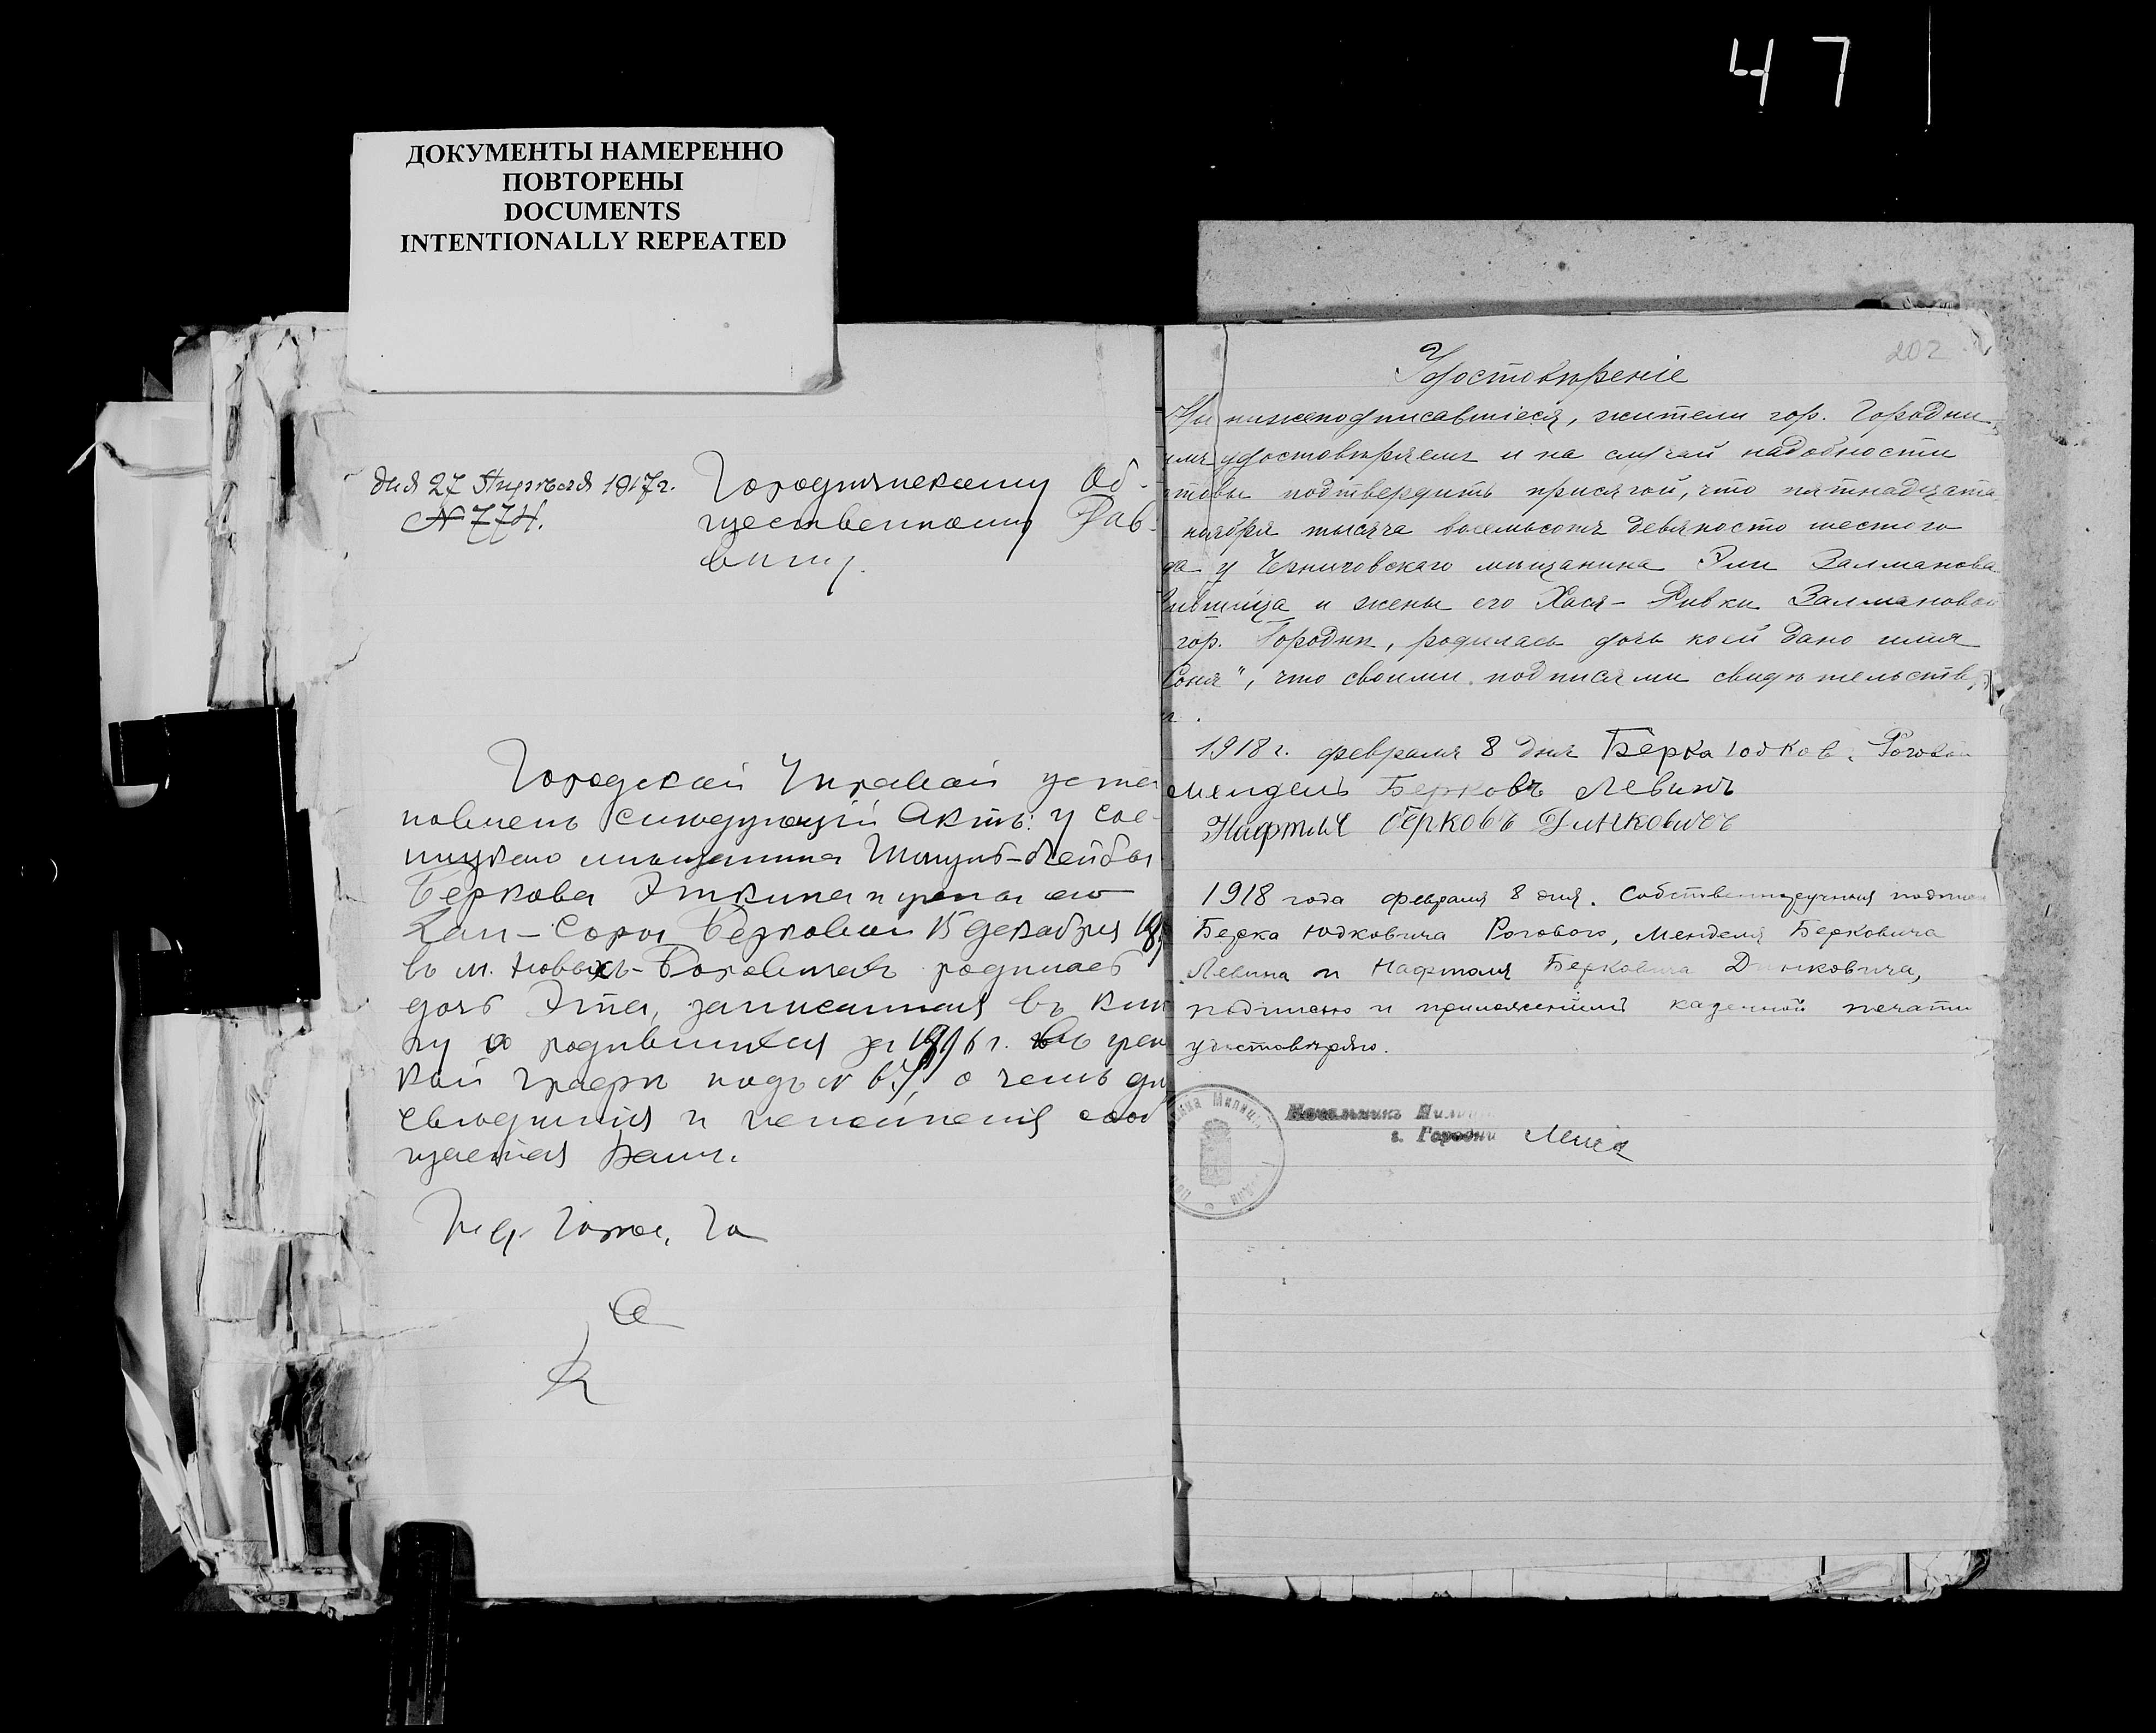 47
ДОКУМЕНТЫ НАМЕРЕННО
ПОВТОРЕНЫ
DOCUMENTS
INTENTIONALLY REPEATED
дня 27 Апрѣля 1917 г.
№ 774.
Городнянскому Об-
щественному Рав-
вину.
Городской Управой уста
новленъ слѣдующій актъ: у Сос-
ницкаго мѣщанина
Беркова Эткина и жены его
Соры Берковой 15 декабря
въ м. Новыхъ-Боровичахъ родилась
дочь Эта, записанная въ кни
гу о родившихся за г. въ жен
кой графѣ подъ № о чемъ для
свѣдѣнія и исполненія сооб
щается Вамъ.
202
Удостовѣреніе
Мы нижеподписавшіеся, жители гор. Городни,
удостовѣряемъ и на случай надобности
готовы подтвердить присягой, что пятнадцата
ноября тысяча восемьсотъ девяносто шестого
да у Черниговскаго мѣщанина Эли Залманова
и жены его Хася-Ривки Залмановой
гор. Городнѣ, родилась дочь коей дано имя
Соня", что своими подписями свидѣтельств
1918 г. февраля 8 дня Берка Юдков. Роговой
Мендель Берковъ Левинъ
Нафтоли Берковъ Динковичъ
1918 года февраля 8 дня. Собственноручныя подписи
Берка Юдковича Рогового, Менделя Берковича
Левина и Нафтоля Берковича Динковича,
подписью и приложеніемъ казенной печати
удостовѣряю.
Начальникъ Милиціи
г. Городни